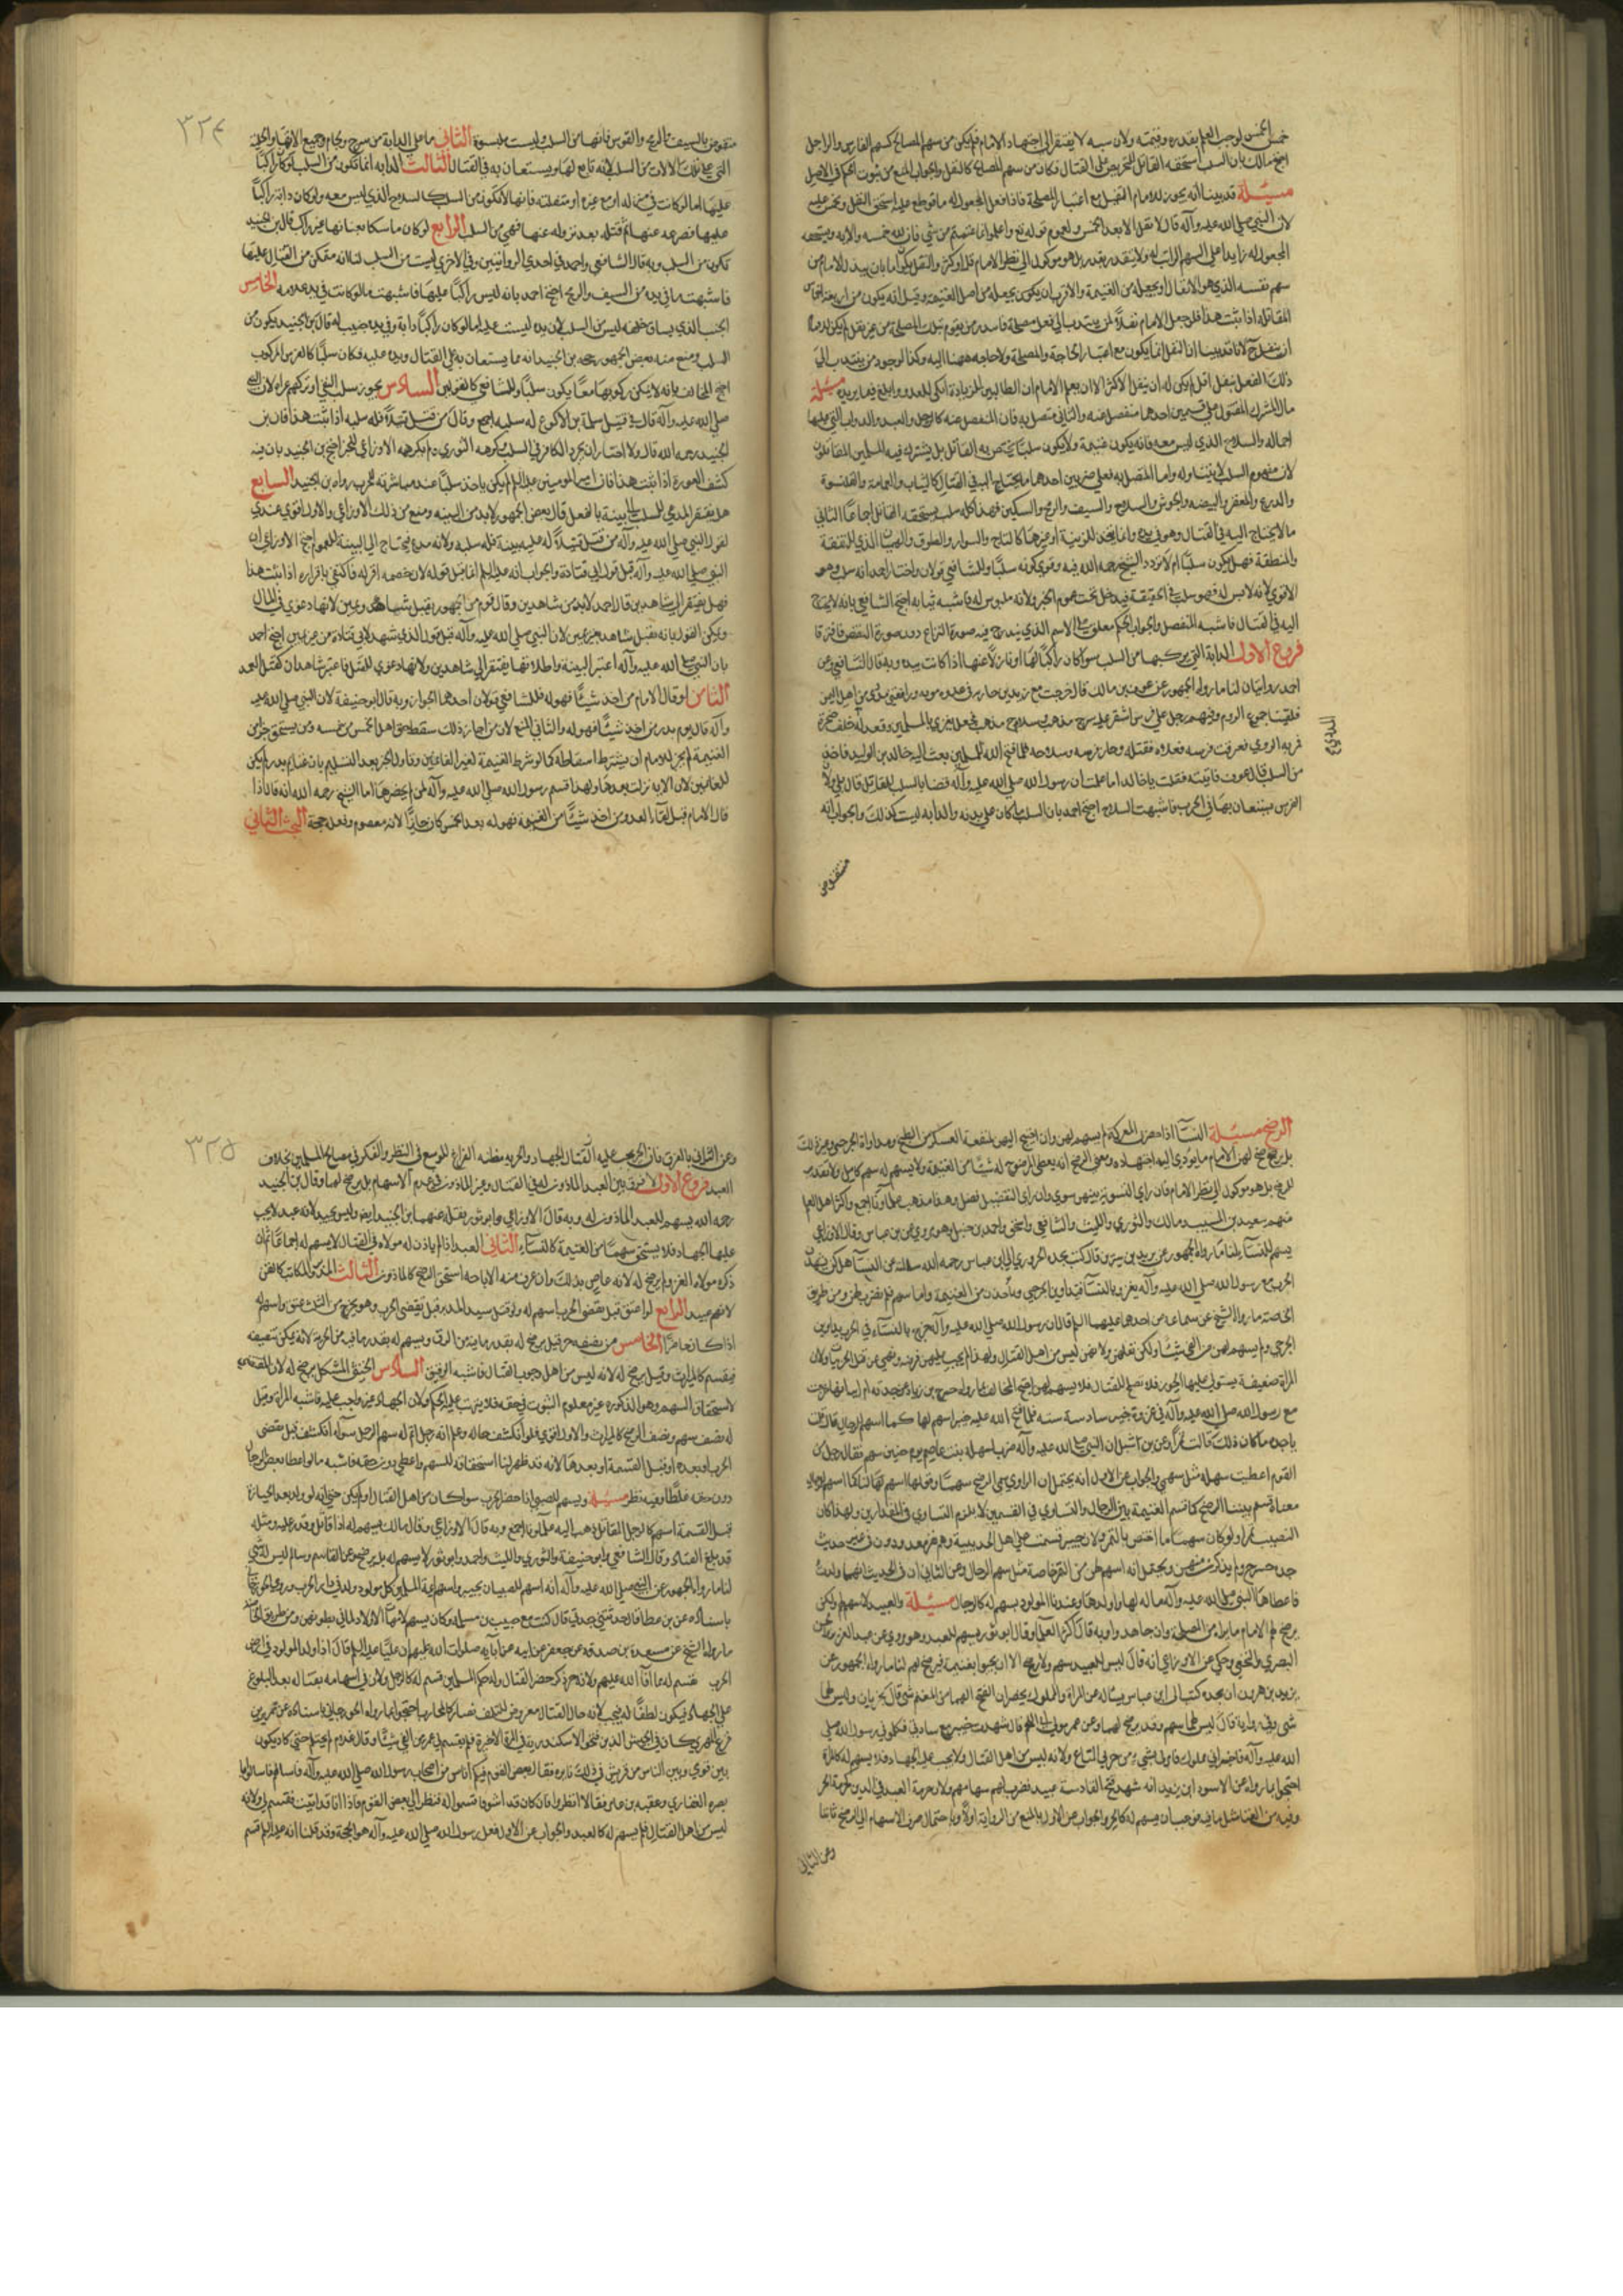 خمس الخمس لوجب العلم بقدره وقيمته ولان سببه لا يفتقر الى اجتهاد الامام فلم يكن من سهم المصالح كسهم الفارس والراجل
احتج مالك بان السلب استحقه القاتل للتحريص على القتال فكان من سهم المصالح كالنفل والجواب المنع من ثبوت الحكم في الاصل
مسئلة قد بينا انه يجوز للامام التنفيل مع اعتبار المصلحة فاذا فعل المجعول له ما قوطع عليه استحق النفل
لان النبي صلى الله عليه وآله قال لا نفل الا بعد الخمس ولعموم قوله تع واعلموا انما غنمتم من شي فان لله خمسه والاية ويستحقه
المجعول له زايدا على السهم الراتب له ولا يتقدر بقدر بل هو موكول الى نظر الامام قل او كثر والنفل يكون اما بان يبذل الامام من
سهم نفسه الذي هو الانفال او يجعله من الغنيمة والاقرب ان يكون يجعله من اصل الغنيمة وقيل انه يكون من اربعة اخماس
المقاتلة اذا ثبت هذا فلو جعل الامام نفلا لمن ينتدب الى فعل مصلحة فانتدب من يقوم بتلك المصلحة من غير نفل لم يكن للامام
ان ينفل لانا قد بينا ان النفل انما يكون مع اعتبار الحاجة والمصلحة ولا حاجة ههنا اليه وكذا لو وجد من ينتدب الى
ذلك الفعل بنفل اقل لم يكن له ان ينفل الاكثر الا ان يعلم الامام ان الطالبين للزيادة انكى للعدو وابلغ فيما يريده مسئلة
مال المشرك المقتول على قسمين احدهما منفصل عنه والثاني متصل به فان المنفصل عنه كالرحل والعبد والدواب التي عليها
احماله والسلاح الذي ليس معه فانه يكون غنيمة ولا يكون سلبا يختص به القاتل بل يشترك فيه المسلمين المقاتلون
لان مفهوم السلب لا يتناوله واما المتصل به فعلى ضربين احدهما ما يحتاج اليه في القتال كالثياب والعمامة والقلنسوة
والدرع والمغفر والبيضة والجوشن والسلاح والسيف والرمح والسكين فهذا كله سلب يستحقه القاتل اجماعا الثاني
مالا يحتاج اليه في القتال وهو في يده وانما يتخذ للزينة او غيرها كالتاج والسوار والطوق والهميان الذي للنفقة
والمنطقة فهل يكون سلبا ام لا تردد الشيخ رحمه الله فيه وقوى كونه سلبا وللشافعي قولان واختار احمد انه سلب وهو
الاقوى لانه لابس له فهو سلب في الحقيقة فيدخل تحت عموم الخبر ولانه ملبوس له فاشبه ثيابه احتج الشافعي بانه لا يحتاج
اليه في القتال فاشبه المنفصل والجواب الحكم معلق على الاسم الذي يندرج فيه صورة النزاع دون صورة النقض فافترقا
فروع الاول الدابة التي يركبها من السلب سوا كان راكبا لها او نازلا عنها اذا كانت بيده وبه قال الشافعي وعن
احمد روايتان لنا ما رواه الجمهور عن عوف بن مالك قال خرجت مع زيد بن حارثة في غزوة موته ورافقني مددي من اهل اليمن
فلقينا جموع الروم وفيهم رجل على فرس اشقر عليه سرج مذهب وسلاح مذهب فجعل يغري بالمسلمين وقعد له خلف صخرة
فمر به الرومي فعرقب فرسه فعلاه فقتله وحاز فرسه وسلاحه فلما فتح الله للمسلمين بعث اليه خالد بن الوليد فاخذ
من السلب قال عوف فاتيته فقلت يا خالد اما علمت ان رسول الله صلى الله عليه وآله قضى بالسلب للقاتل قال بلى ولان
الفرس يستعان بها في الحرب فاشبهت السلاح احتج احمد بان السلب ما كان على بدنه والدابة ليست كذلك والجواب انه
منقوض
منقوض بالسيف والرمح والقوس فانها من السلب وليست ملبسوة الثاني ما على الدابة من سرج ولجام وجميع الاتها والحلية
التي على تلك الالات من السلب لانه تابع لها ويستعان به في القتال الثالث الدابة انما تكون من السلب لو كان راكبا
عليها اما لو كانت في منزله او مع غيره او منفلتة فانها لا تكون من السلب كالسلاح الذي ليس معه ولو كان دابته راكبا
عليها فصرعه عنها ثم قتله بعد نزوله عنها فهي من السلب الرابع لو كان ماسكا بعنانها غير راكب قال ابن الجنيد
تكون من السلب وبه قال الشافعي واحمد في احدى الروايتين وفي الاخرى ليست من السلب لنا انه متمكن من القتال عليها
فاشبهت ما في يده من السيف والرمح احتج احمد بانه ليس راكبا عليها فاشبهت ما لو كانت في يد غلامه الخامس
الجنب الذي يساق خلفه ليس من السلب لان يده ليست عليه اما لو كان راكبا دابة وفي يده جنيبة له قال ابن الجنيد يكون من
السلب ومنع منه بعض الجمهور حجة ابن الجنيد انه مما يستعان به على القتال ويده عليه فكان سلبا كالفرس المركوب
احتج المخالف بانه لا يمكن ركوبهما معا يكون سلبا وللشافعي كالقولين السادس يجوز سلب القتلى وتركهم عراة لان النبي
صلى الله عليه وآله قال في قتيل سلمة بن الاكوع له سلبه اجمع وقال من قتل قتيلا فله سلبه اذا ثبت هذا فان ابن
الجنيد رحمه الله قال ولا اختار ان يجرد الكافر في السلب وكرهه الثوري ولم يكرهه الاوزاعي للخبر احتج ابن الجنيد بان فيه
كشف العورة اذا ثبت هذا فان امير المومنين عليه السلام لم يكن ياخذ سلبا عند مباشرته للحرب رواه ابن الجنيد السابع
هل يفتقر المدعي للسلب الى بينة بالفعل قال بعض الجمهور لابد من البينة ومنع من ذلك الاوزاعي والاول اقوى عندي
لقول النبي صلى الله عليه وآله من قتل قتيلا له عليه بينة فله سلبه ولانه مدع فيحتاج الى البينة للعموم احتج الاوزاعي ان
النبي صلى الله عليه وآله قبل قول ابي قتادة والجواب انه عليه السلام انما قبل قوله لان خصمه اقر له فاكتفى باقراره اذا ثبت هذا
فهل يفتقر الى شاهدين قال احمد لابد من شاهدين وقال قوم من الجمهور يقبل شاهد ويمين لانها دعوى في المال
ويمكن القول بانه يقبل شاهد بغير يمين لان النبي صلى الله عليه وآله قبل قول الذي شهد لابي قتادة من غير يمين احتج احمد
بان النبي صلى الله عليه وآله اعتبر البينة واطلاقها يفتقر الى شاهدين ولانها دعوى للقتل فاعتبر شاهدان كقتل العمد
الثامن لو قال الامام من اخذ شيئا فهو له فللشافعي قولان احدهما الجواز وبه قال ابو حنيفة لان النبي صلى الله عليه
وآله قال يوم بدر من اخذ شيئا فهو له والثاني المنع لان من اجاز ذلك سقط حق اهل الخمس من خمسه ومن يستحق جزا من
الغنيمة لم يجز للامام ان يشترط اسقاطه كما لو شرط الغنيمة لغير الغانمين وتاولوا الخبر بعد التسليم بان غنايم بدر لم يكن
للغانمين لان الاية نزلت بعدها ولهذا قسم رسول الله صلى الله عليه وآله لمن لم يحضرها اما الشيخ رحمه الله انه قال اذا
قال الامام قبل لقاء العدو من اخذ شيئا من الغنيمة فهو له بعد الخمس كان جايزا لانه معصوم وفعله حجة البحث الثاني
٣٢٤
الرضخ مسئلة النسآ اذا حضرن المعركة لم يسهم لهن وان احتيج اليهن لمنفعة العسكر من الطبخ ومداواة الجرحى وغير ذلك
بل يرضخ لهن الامام ما يؤدي اليه اجتهاده ومعنى الرضخ انه يعطي المرضوخ له شيئا من الغنيمة ولا يسهم له سهم كامل ولا تقدير
للرضخ بل هو موكول الى نظر الامام فان راى التسوية بينهن سوى وان راى التفضيل فضل وهذا مذهب علماؤنا اجمع واكثر اهل العلم
منهم سعيد بن المسيب ومالك والثوري والليث والشافعي واسحق واحمد بن حنبل وهو مروي عن ابن عباس وقال الاوزاعي
يسهم للنسآء لنا ما رواه الجمهور عن يزيد بن هرمز قال كتب نجدة الحروري الى ابن عباس رحمه الله ساله عن النسآ هل كن يشهدن
الحرب مع رسول الله صلى الله عليه وآله يغزو بالنسآ فيداوين الجرحى ويأخذن من الغنيمة واما سهم فلم يضرب لهن ومن طريق
الخاصة ما رواه الشيخ عن سماعة عن احدهما عليهما السلم قال ان رسول الله صلى الله عليه وآله خرج بالنسآء في الحرب يداوين
الجرحى ولم يسهم لهن من الفي شيئا ولكن نفلهن ولانهن ليس من اهل القتال ولهذا لم يجب عليهن فرضه
المرأة ضعيفة يستولي عليها الخور فلا تصلح للقتال فلا يسهم لها احتج المخالف بما رواه حشرج بن زياد عن جدته ام ابيه انها غزت
مع رسول الله صلى الله عليه وآله في غزوة خيبر سادسة ستة فلما فتح الله عليه خيبر اسهم لها كما اسهم للرجال قال قلت
يا جده ما كان ذلك قالت تمرا
القوم اعطيت سهلة مثل سهمي والجواب عن الاول انه يحتمل ان الراوي سمى الرضخ سهما وقولها اسهم لنا كما اسهم للرجال
معناه قسم بيننا الرضخ كما قسم الغنيمة بين الرجال والتساوي في القسمين لا يلزم التساوي في المقدارين ولهذا كان
النصيب تمرا ولو كان سهما ما اختص بالتمر ولان خيبر قسمت على اهل الحديبية وهم نفر معدودون في غير حديث
جدة حشرج ولم يذكرن منهم ويحتمل انه اسهم لهن من التمر خاصة مثل سهم الرجال وعن الثاني ان في الحديث انها ولدت
فاعطاها النبي صلى الله عليه وآله ما له لها ولولدها وعندنا المولود يسهم له كالرجال مسئلة والعبيد لا سهم لهم ولكن
يرضخ لهم الامام ما يراه من المصلحة وان جاهدوا وبه قال اكثر العلمآ وقال ابو ثور يسهم للعبد وهو مروي عن عمر بن عبد العزيز
البصري والنخعي وحكي عن الاوزاعي انه قال ليس للعبيد سهم ولا رضخ الا ان يجيوا بغنيمة فيرضخ لهم لنا ما رواه الجمهور عن
يزيد بن هرمز ان نجدة كتب الى ابن عباس يسئله عن المراة والمملوك يحضران الفتح الهما من المغنم شي قال يحذيان وليس لهما
شي وفي رواية قال ليس لهما سهم وقد يرضخ لهما وعن عمير مولى ابي اللحم قال شهدت خيبر مع سادتي فكلموا في رسول الله صلى
الله عليه وآله فاخبر اني مملوك فامر لي بشيء من خرثي المتاع ولانه ليس من اهل القتال ولا يجب عليه الجهاد فلا يسهم له كالمراة
احتجوا بما رواه عن الاسود ابن يزيد انه شهد فتح القادسية عبيد فضرب لهم سهامهم ولان حرمة العبد في الدين كحرمة الحر
وفيه من الغنا مثل ما فيه فوجب ان يسهم له كالحر والجواب عن الاول بالمنع من الرواية اولا وباحتمال صرف الاسهام الى الرضخ ثانيا
وعن الثاني
وعن الثاني بالفرق فان الحر يجب عليه القتال الجهاد والحرية مظنة الفراغ للتوسع في النظر والفكر في مصالح المسلمين بخلاف
العبد فروع الاول لا فرق بين العبد الماذون له في القتال وغير الماذون في عدم الاسهام بل يرضخ لهما وقال ابن الجنيد
رحمه الله يسهم للعبد الماذون له وبه قال الاوزاعي وابو ثور
عليها الجهاد فلا يستحق سهما من الغنيمة كالنساء الثاني العبد اذا لم ياذن له مولاه في القتال لا يسهم له اجماعا
ذكره مولاه الغزو لم يرضخ له لانه عاص بذلك وان عرف منه الاباحة استحق الرضخ كالماذون الثالث المدبر والمكاتب كالقن
لانهم عبيد الرابع لو اعتق قبل تقضي الحرب اسهم له ولو قتل سيد المدبر قبل تقضى الحرب وهو يخرج من الثلث عتق واسهم له
اذا كان حاضرا الخامس من نصفه حر قيل يرضخ له بقدر ما فيه من الرق ويسهم له بقدر ما فيه من الحرية لانه يمكن تبعيضه
فيقسم كالميراث وقيل يرضخ له لانه ليس من اهل وجوب القتال فاشبه الرقيق السادس الخنثى المشكل يرضخ له لان المقتضي
لاستحقاق السهم وهو الذكورة غير معلوم الثبوت في حقه فلا يترتب عليه الحكم ولان الجهاد غير واجب عليه فاشبه المرأة وقيل
له نصف سهم ونصف الرضخ كالميراث والاول اقوى فلو انكشف حاله وعلم انه رجل اتم له سهم الرجل سوآء انكشف قبل تقضى
الحرب او بعده او قبل القسمة او بعدها لانه قد ظهر لنا استحقاقه للسهم واعطي دون حقه فاشبه ما لو اعطا بعض الرجال
دون حقه غلطا وفيه نظر مسئلة ويسهم للصبي اذا حضر الحرب سوا كان من اهل القتال او لم يكن حتى انه لو ولد بعد الحيازة
قبل القسمة اسهم له كالرجل المقاتل ذهب اليه علماؤنا اجمع وبه قال الاوزاعي وقال مالك يسهم له اذا قاتل
قد بلغ القتال وقال الشافعي وابو حنيفة والثوري والليث واحمد وابو ثور لا يسهم له بل يرضخ وعن القاسم وسالم ليس له شي
لنا ما رواه الجمهور عن النبي صلى الله عليه وآله انه اسهم للصبيان بخيبر واسهم ائمة المسلمين لكل مولود ولد في دار الحرب
باسناده عن ابن عطا قال حدثتني جدتي قال كنت مع حبيب بن مسلمة وكان يسهم لامهات الاولاد لما في بطونهن ومن طريق الخاصة
ما رواه الشيخ عن مسعدة بن صدقة عن جعفر عن ابيه عن ابآيه صلوات الله عليهم ان عليا عليه السلم قال اذا ولد المولود في ارض
الحرب قسم له مما افآ الله عليهم ولانه حر ذكر حضر القتال وله حكم المسلمين قسم له كالرجل ولان في اسهامه بعثا له بعد البلوغ
على الجهاد فيكون لطفا له فيجب لانه حال القتال معروض للتلف فصار كالمحارب احتجوا بما رواه الجوزجاني باسناده عن تميم بن
فرع المهري كان في الجيش الذين فتحوا الاسكندرية في المرة الاخيرة قال فلم يقسم لي عمرو من الفي شيئا وقال غلام لم يحتلم حتى كاد يكون
بين قومي وبين الناس من قريش في ذلك نايرة فقال بعض القوم فيكم اناس من اصحاب رسول الله صلى الله عليه وآله فاسالوهم فاسالوا ابا
بصرة الغفاري وعقبة بن عامر فقالا انظروا فان كان قد اشعر فاقسموا له فنظر الي بعض القوم فاذا انا قد انبت فقسم لي ولانه
ليس من اهل القتال فلم يسهم له كالعبد والجواب عن الاول فعل رسول الله صلى الله عليه وآله هو الحجة وقد نقلنا انه عليه السلم قسم
٣٢٥